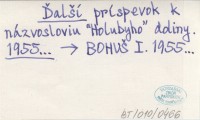 Ďalší príspevok k
názvosloviu "Holubyho" doliny.
1955... → BOHUŠ I. 1955...
BT/010/0466